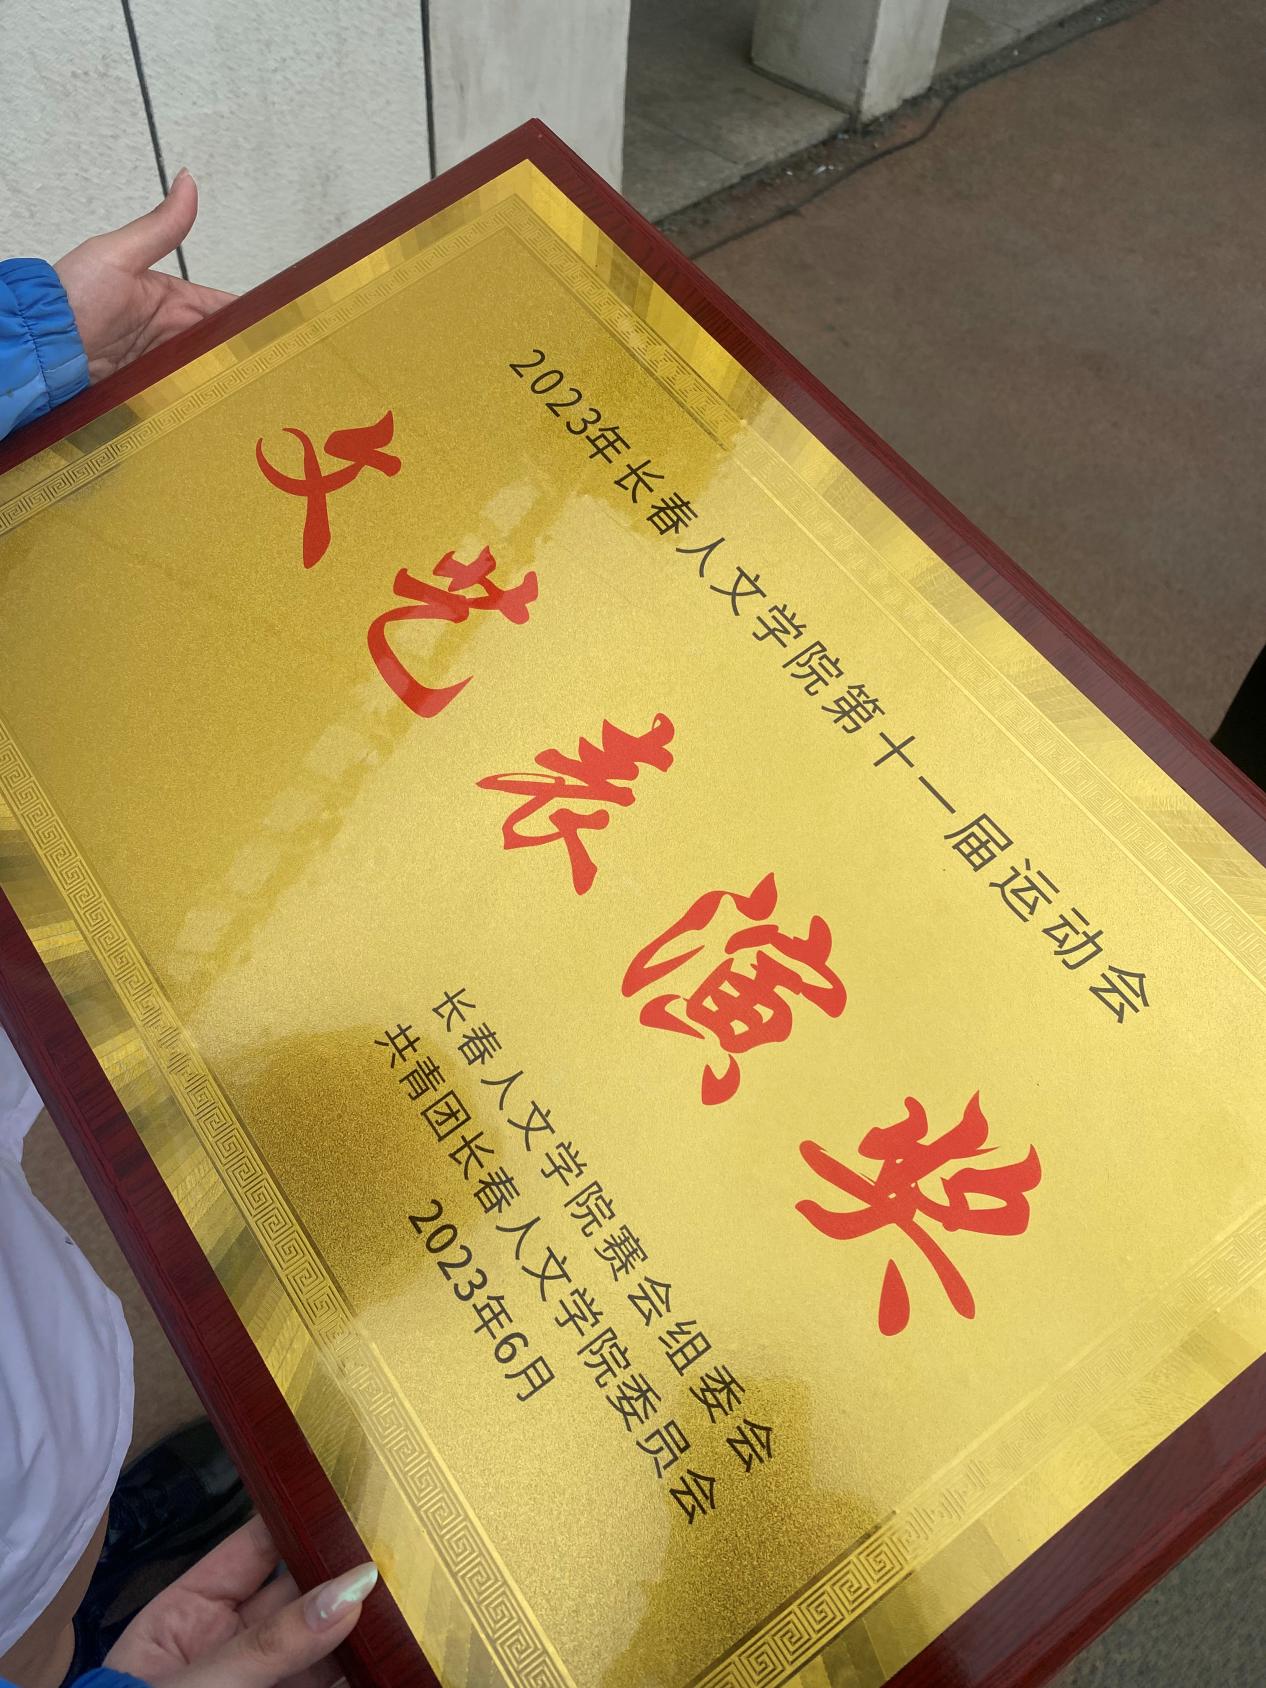 2023年长春人文学院第十一届运动会
文艺表演奖
长春人文学院赛会组委会
共青团长春人文学院委员会
2023年6月